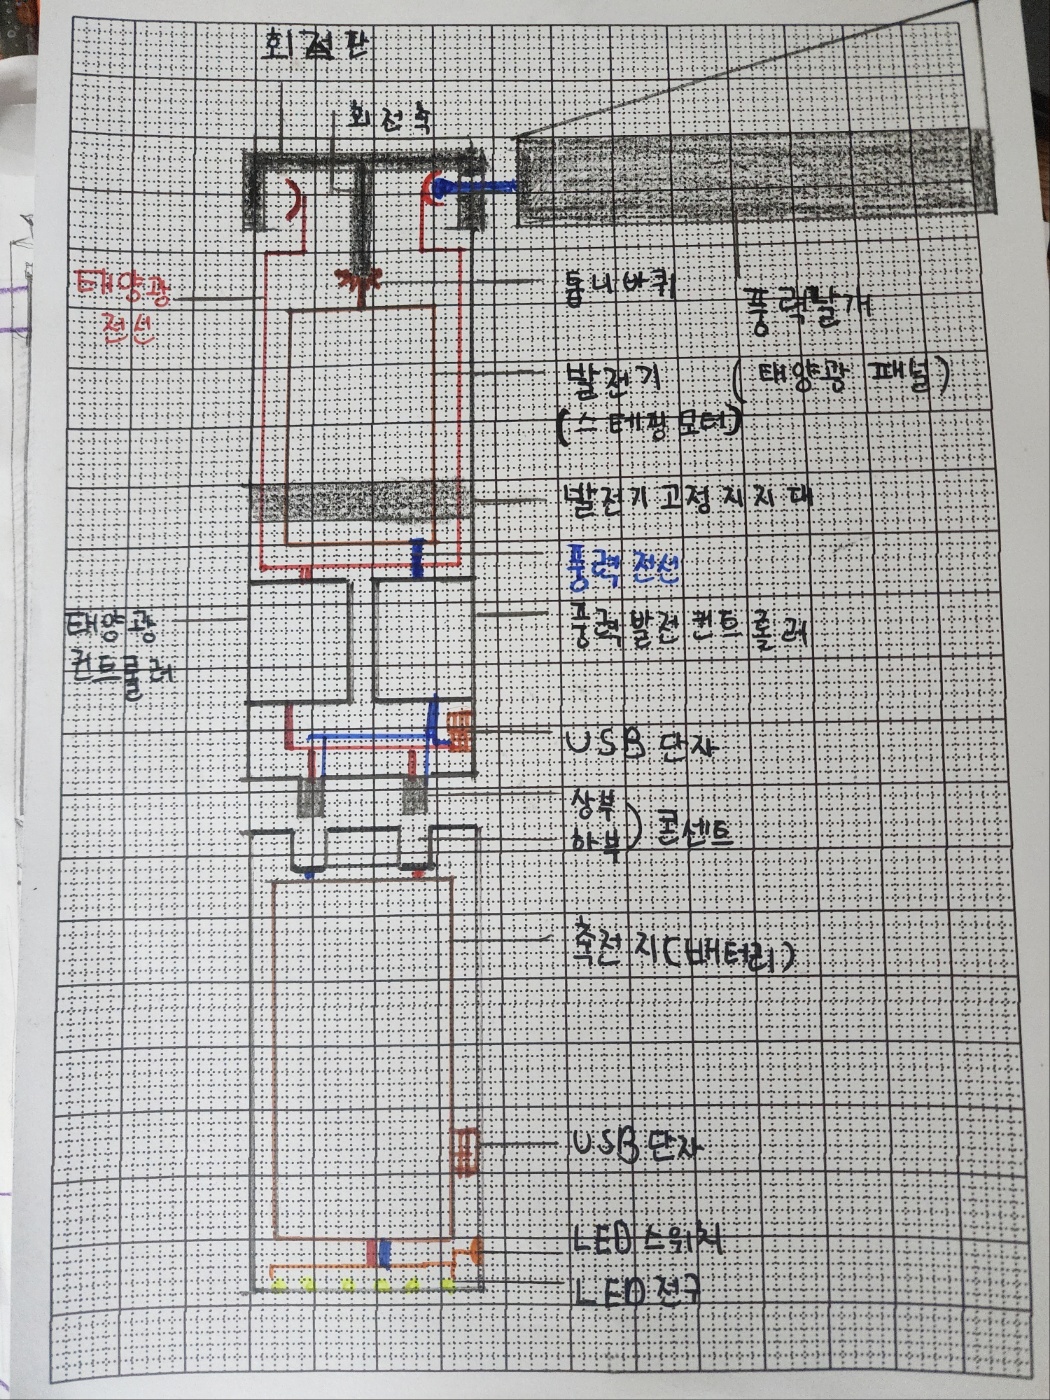 회전판
회전축
태양광
전선
톱니바퀴
풍력날개
(태양광 패널)
발전기
(스테핑모터)
발전기고정지지대
풍력전선
태양광
컨트롤러
풍력발전컨트롤러
USB단자
상부
하부
콘센트
축전지(배터리)
USB단자
LED스위치
LED전구